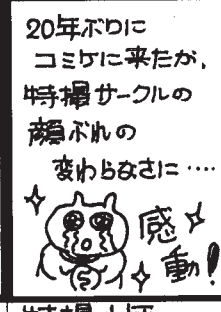 20年ぶりに
コミケに来たが、
特撮サークルの
顔ぶれの
変わらなさに‥‥
感
動!